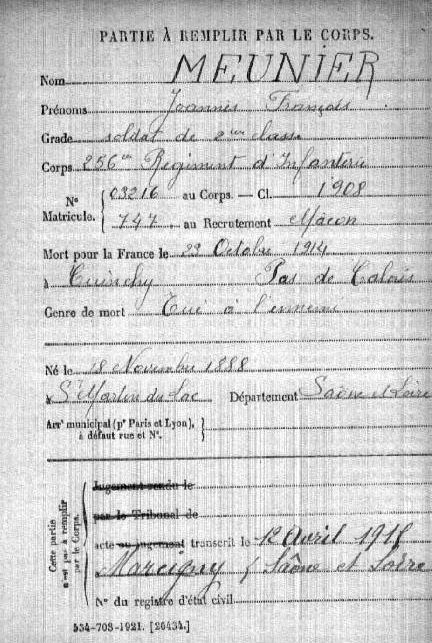 PARTIE À REMPLIR PAR LE CORPS.
Nom MEUNIER
Prénoms Joannès François
Grade soldat de 2ème classe
Corps 256e Régiment d'Infanterie
N° Matricule. 03216 au Corps. — Cl. 1908
747 au Recrutement Mâcon
Mort pour la France le 22 Octobre 1914
à Cuinchy Pas de Calais
Genre de mort Tué à l'ennemi
Né le 18 Novembre 1888
à St Martin du Lac Département Saône et Loire
Arrt municipal (pr Paris et Lyon),
à défaut rue et N°.
Cette partie n'est pas à remplir par le Corps.
Jugement rendu le
par le Tribunal de
acte ou jugement transcrit le 12 Avril
à Marcigny (Saône et Loire
N° du registre d'état civil
534-708-1921. [26434.]